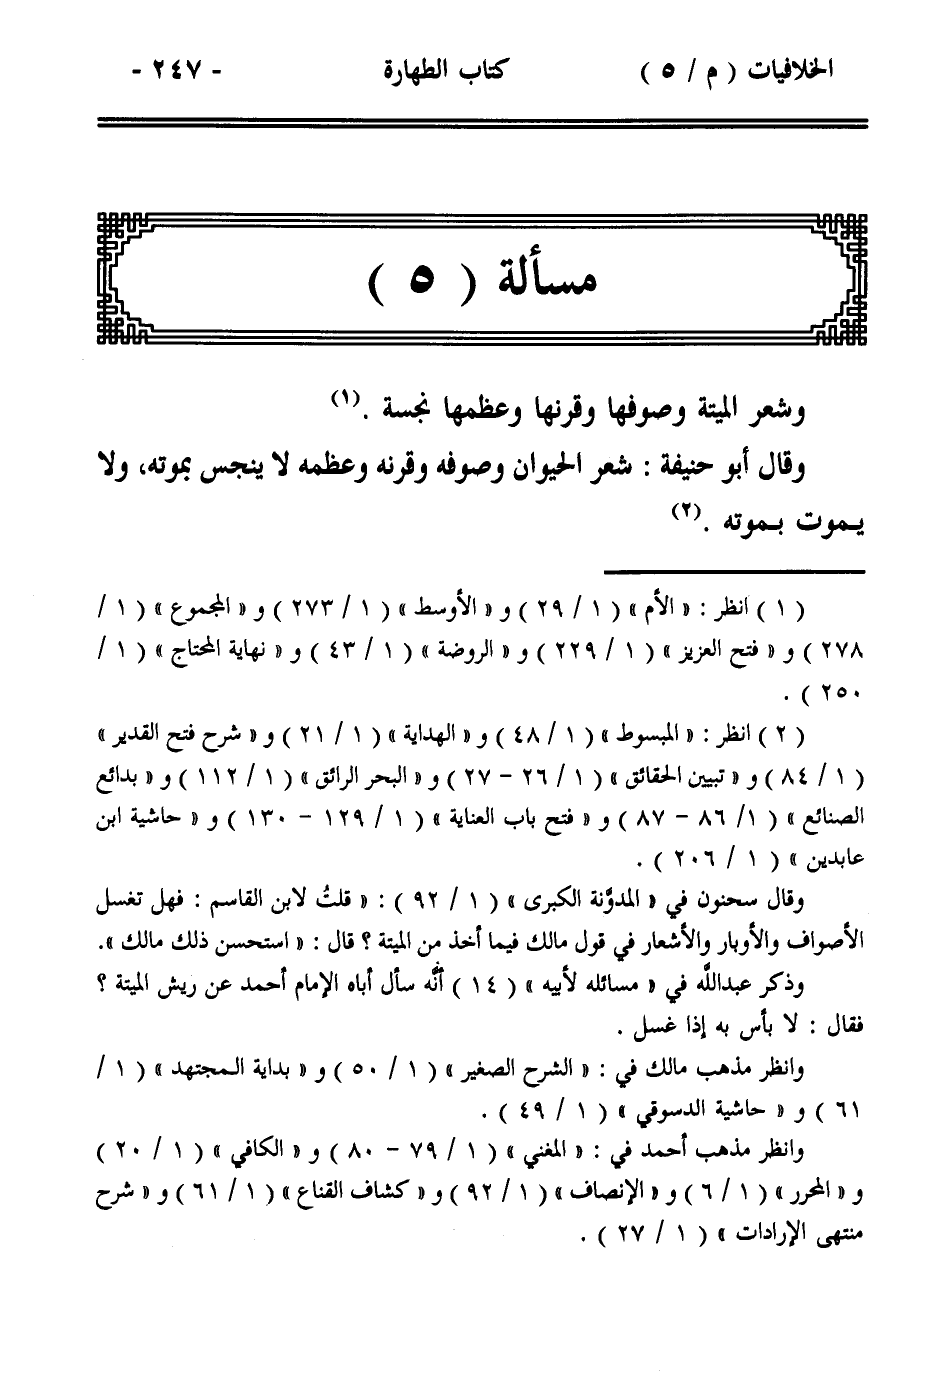 الخلافيات ( م / ٥ ) كتاب الطهارة - ٢٤٧ -
مسألة ( ٥ )
وشعر الميتة وصوفها وقرنها وعظمها نجسة .(١)
وقال أبو حنيفة : شعر الحيوان وصوفه وقرنه وعظمه لا ينجس بموته، ولا
يـموت بـموته .(٢)
( ١ ) انظر : « الأم » ( ١ / ٢٩ ) و « الأوسط » ( ١ / ٢٧٣ ) و « المجموع » ( ١ /
٢٧٨ ) و « فتح العزيز » ( ١ / ٢٢٩ ) و « الروضة » ( ١ / ٤٣ ) و « نهاية المحتاج » ( ١ /
٢٥٠ ) .
( ٢ ) انظر : « المبسوط » ( ١ / ٤٨ ) و « الهداية » ( ١ / ٢١ ) و « شرح فتح القدير »
( ١ / ٨٤ ) و « تبيين الحقائق » ( ١ / ٢٦ - ٢٧ ) و « البحر الرائق » ( ١ / ١١٢ ) و « بدائع
الصنائع » ( ١ / ٨٦ - ٨٧ ) و « فتح باب العناية » ( ١ / ١٢٩ - ١٣٠ ) و « حاشية ابن
عابدين » ( ١ / ٢٠٦ ) .
وقال سحنون في « المدوَّنة الكبرى » ( ١ / ٩٢ ) : « قلتُ لابن القاسم : فهل تغسل
الأصواف والأوبار والأشعار في قول مالك فيما أخذ من الميتة ؟ قال : « استحسن ذلك مالك ».
وذكر عبداللَّه في « مسائله لأبيه » ( ١٤ ) أنَّه سأل أباه الإمام أحمد عن ريش الميتة ؟
فقال : لا بأس به إذا غسل .
وانظر مذهب مالك في : « الشرح الصغير » ( ١ / ٥٠ ) و « بداية الـمجتهد » ( ١ /
٦١ ) و « حاشية الدسوقي » ( ١ / ٤٩ ) .
وانظر مذهب أحمد في : « المغني » ( ١ / ٧٩ - ٨٠ ) و « الكافي » ( ١ / ٢٠ )
و « المحرر » ( ١ / ٦ ) و « الإنصاف » ( ١ / ٩٢ ) و « كشاف القناع » ( ١ / ٦١ ) و « شرح
منتهى الإرادات » ( ١ / ٢٧ ) .